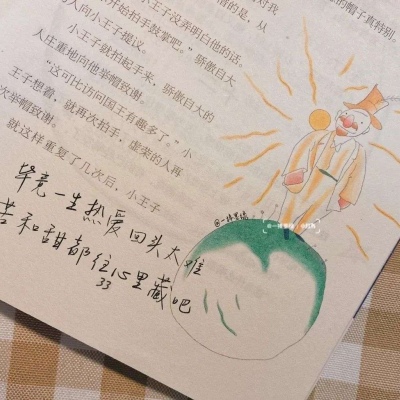 对我
的是，从
的帽子真特别。
小王子没弄明白他的话。
开始拍手鼓掌吧。”骄傲自大
人向小王子提议。
小王子就拍起手来，骄傲自大的
人庄重地向他举帽致谢。
“这可比访问国王有趣多了。”小
王子想着，就再次拍手，虚荣的人再
次举帽致谢。
就这样重复了几次后，小王子
毕竟一生热爱回头太难
苦和甜都往心里藏吧
33